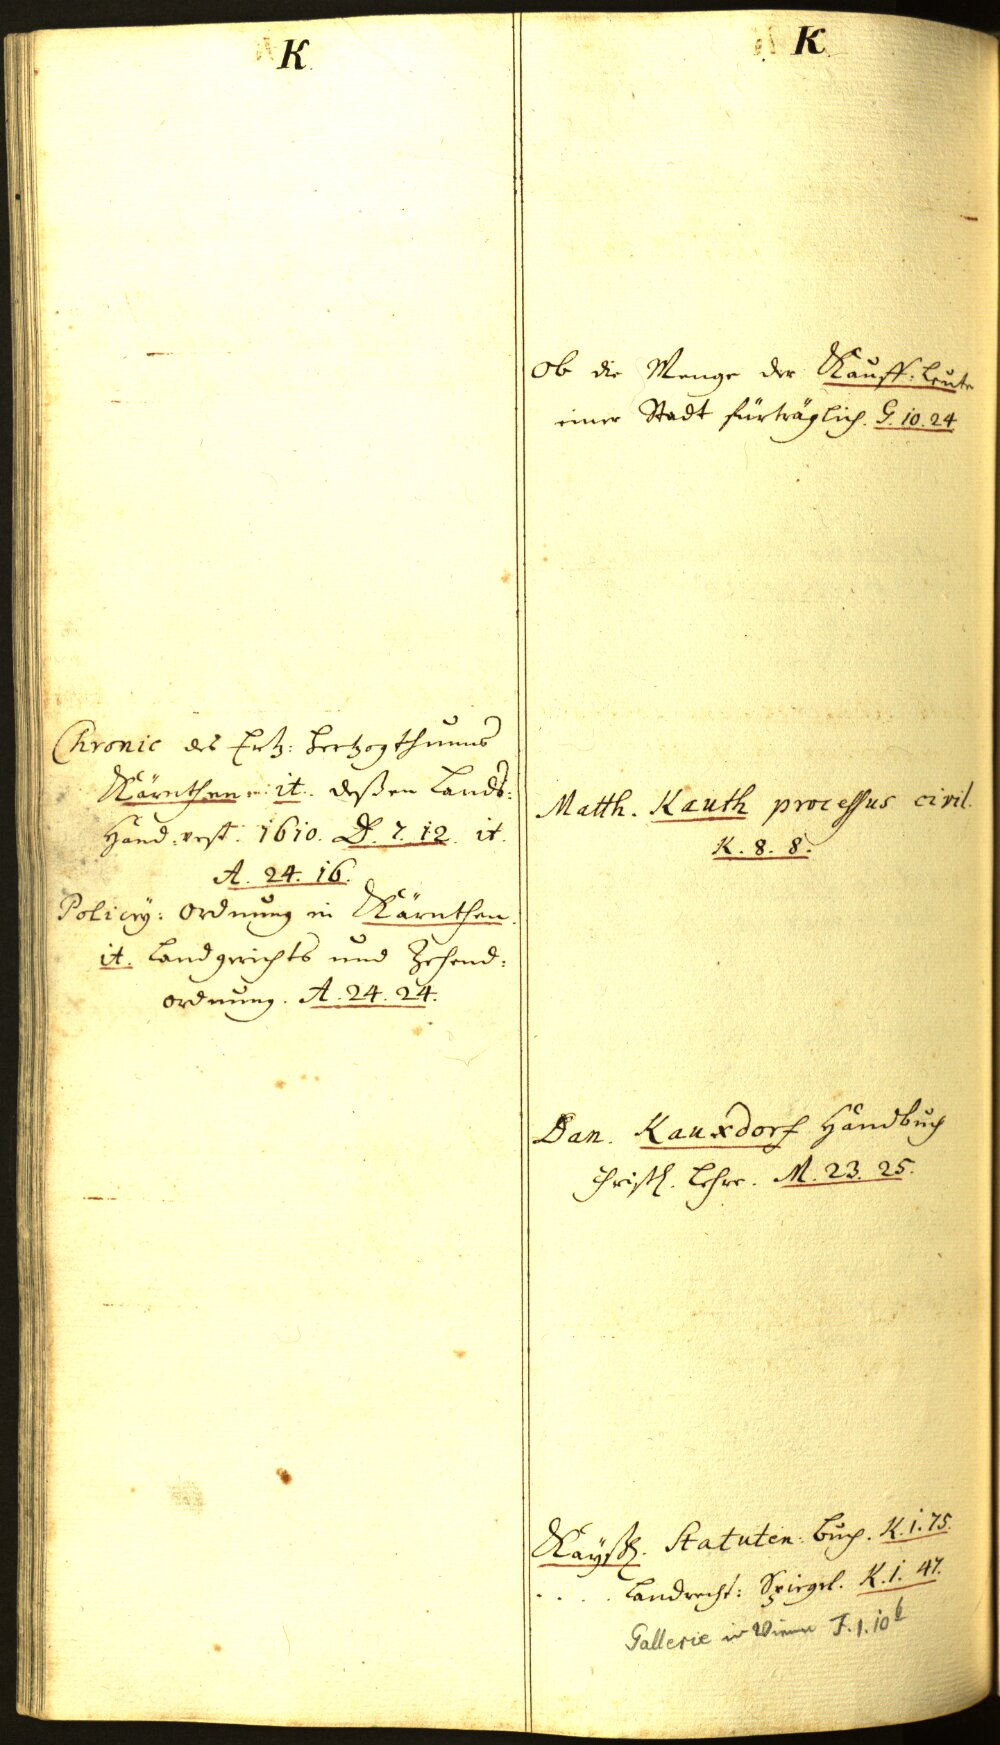 K.
Chronic des Ertz: Hertzogthums
Kärnthen: it. deßen Lands:
Handvest. 1610. D. 7. 12. it.
A. 24. 16.
Policey: Ordnung in Kärnthen.
it. Landgerichts und Zehend:
ordnung. A. 24. 24.
K
Ob die Menge der Kauff: Leute
einer Stadt fürträglich. G. 10. 24.
Matth. Kauth processus civil.
K. 8. 8.
Dan. Kauxdorf Handbuch
christl. Lehre. M. 23. 25.
Kaysl. Statuten: Buch. K. 1. 75.
. . . . Landrecht: Spiegel. K. 1. 47.
Gallerie in Wienn F. 1. 10 b